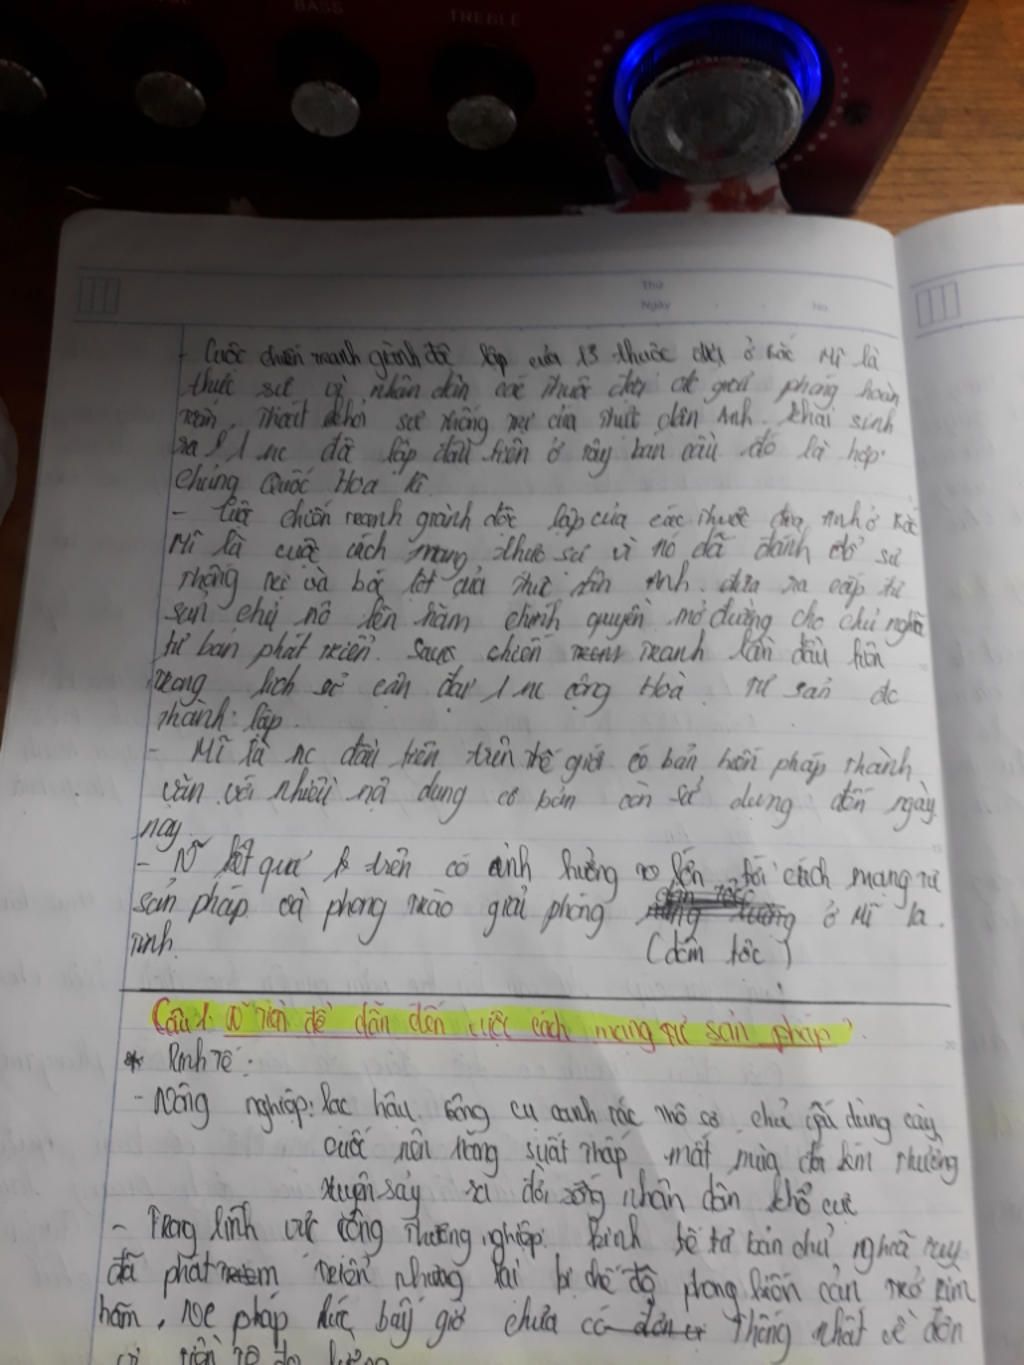 BASS
TREBLE
Thứ
Ngày
No
- Cuộc chiến tranh giành độ lập của 13 thuộc địa ở Bắc Mĩ là
thức sự vì nhân dân các thuộc địa đc giải phóng hoàn
toàn. Thoát khỏi sự thống trị của thực dân Anh. Khai sinh
ra 1 nc đã lập đầu tiên ở tây bán cầu đó là hợp
chúng Quốc Hoa Kì
- Cuộc chiến tranh giành độc lập của các thuộc địa Anh ở Bắc
Mĩ là cuộc cách mạng thực sự vì nó đã đánh đổ sự
thống trị và bóc lột của thực dân Anh. đưa ra cấp tư
sản chủ nô lên nắm chính quyền mở đường cho chủ nghĩa
tư bản phát triển. chiến tranh lần đầu tiên
trong lịch sử cận đại 1 nc cộng Hoà tư sản đc
thành lập.
- Mĩ là nc đầu tiên trên thế giới có bản hiến pháp thành
văn với nhiều nộ dung cơ bản còn sử dụng đến ngày
nay
- N~ kết quả trên có ảnh hưởng to lớn tới cách mạng tư
sản pháp và phong trào giải phóng ở Mĩ la
tinh.
(dân tộc)
Câu 1: N~ tiền đề dẫn đến cuộc cách mạng tư sản pháp?
* Kinh tế:
- Nông nghiệp: lạc hậu. công cụ canh tác thô sơ chủ yếu dùng cày,
cuốc nên năng suất thấp mất mùa đói kém thường
xuyên sảy ra đời sống nhân dân khổ cực
- Trong lĩnh vực công thương nghiệp. Kinh tế tư bản chủ nghĩa tuy
đã phát triển nhưng lại bị chế độ phong kiến cản trở kìm
hãm. nc pháp lúc bấy giờ chưa có thống nhất về đơn
vị tiền tệ đo lường